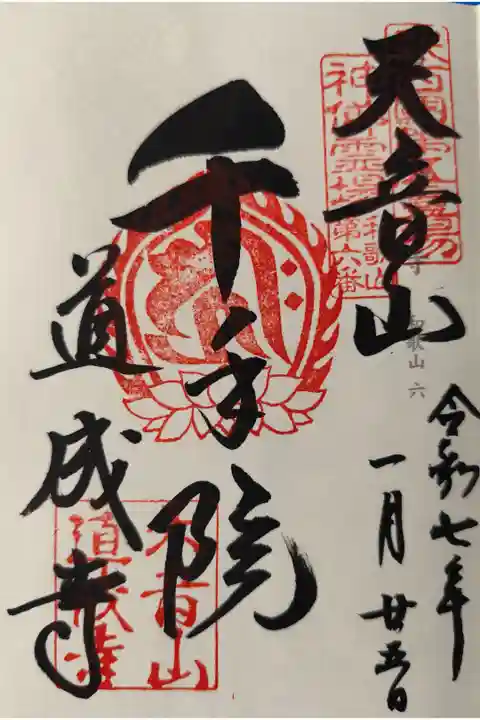 天音山
千手院
道成寺
令和七年
一月廿五日
和歌山 六
神仏霊場
和歌山
第六番